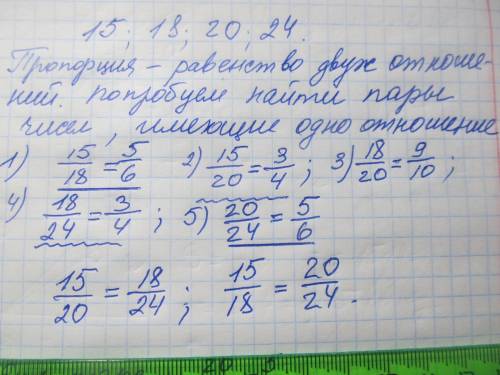 15; 18; 20; 24.
Пропорция – равенство двух отноше-
ний. попробуем найти пары
чисел, имеющие одно отношение
1) 15/18 = 5/6 2) 15/20 = 3/4; 3) 18/20 = 9/10;
4) 18/24 = 3/4; 5) 20/24 = 5/6
15/20 = 18/24; 15/18 = 20/24.